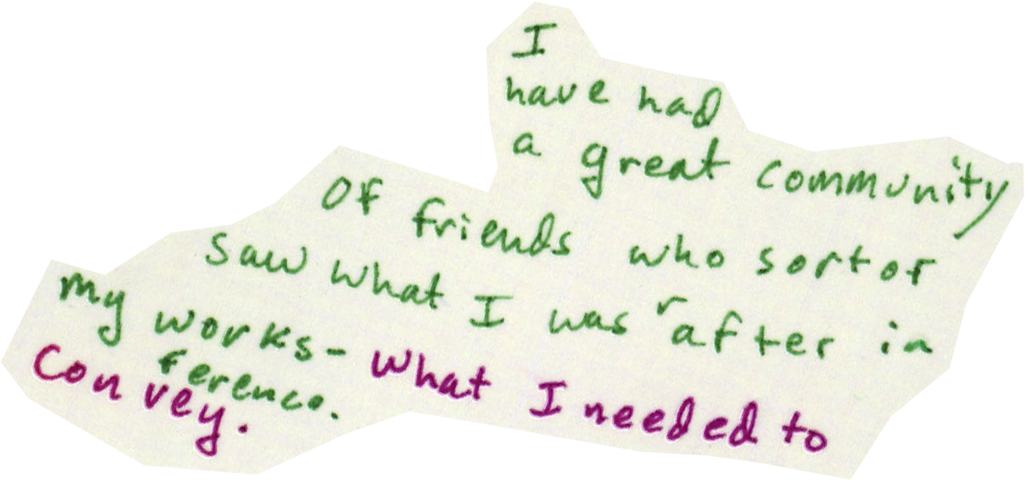 I
have had
a great community
of friends who sort of
saw what I was after in
my works- what I needed to
ference.
convey.